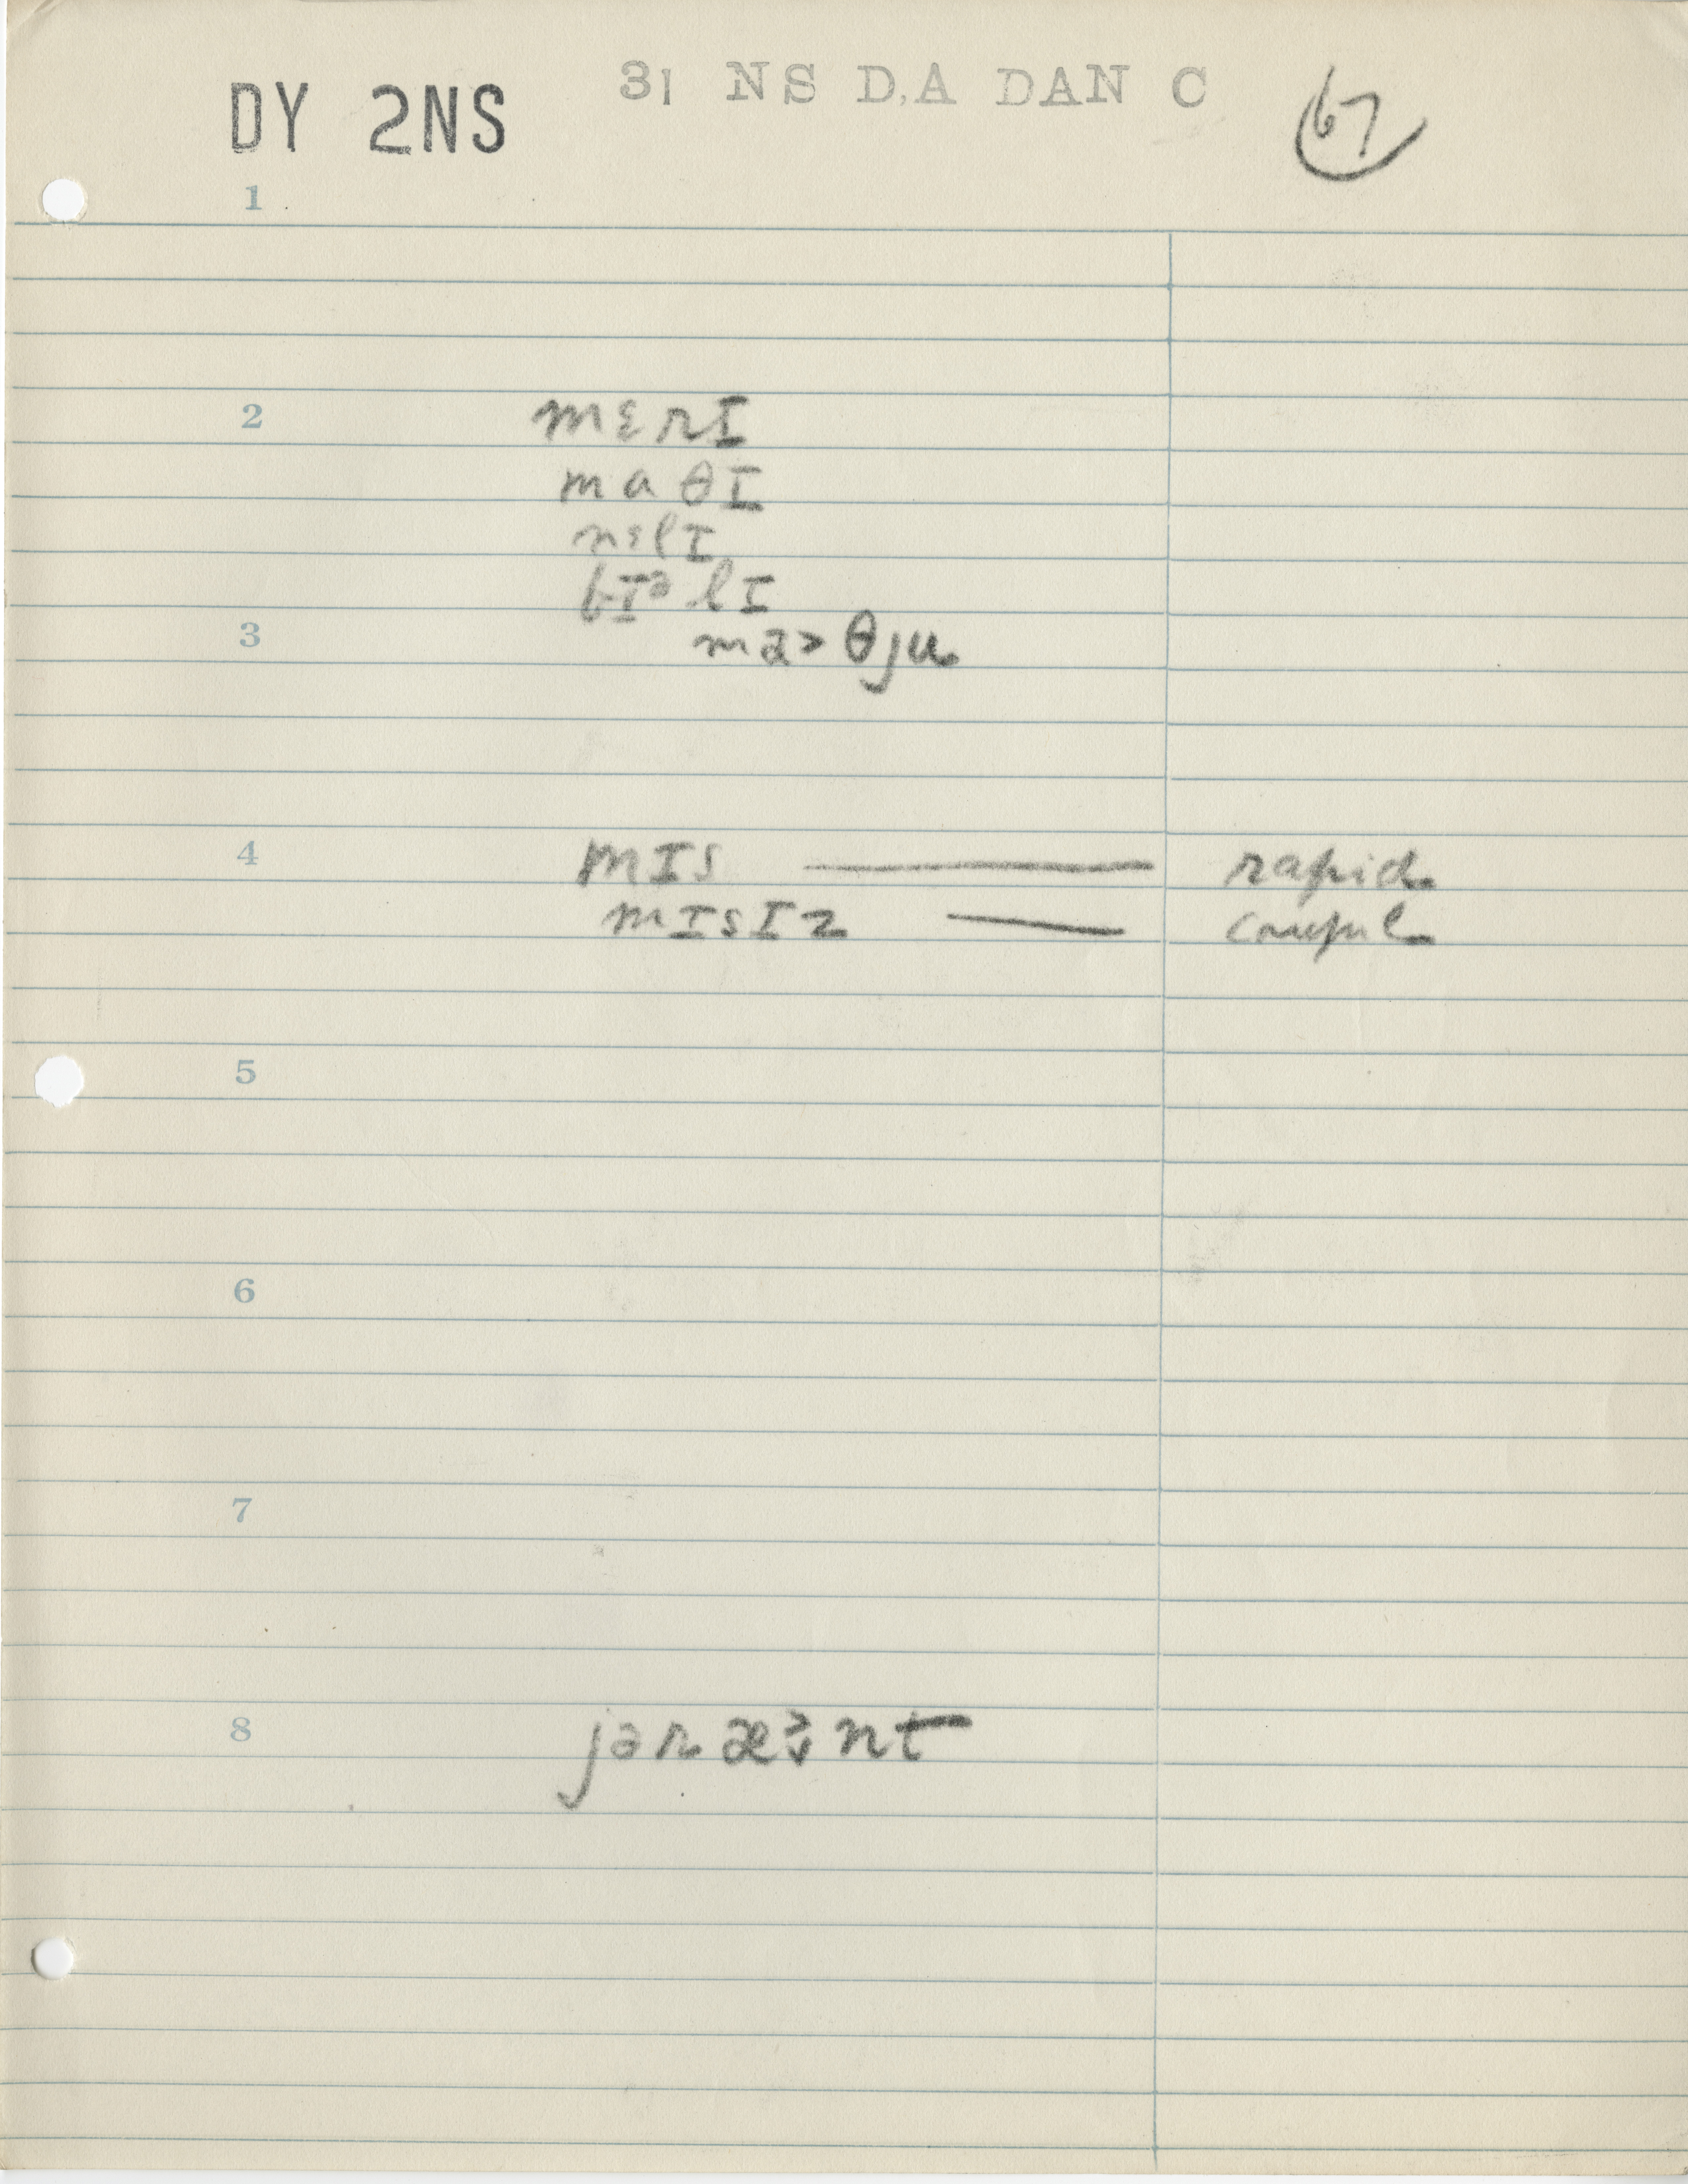 DY 2NS 31 NS D.A DAN C 67
1
2 mɛrɪ
maθɪ
nɛlɪ
bɪᵊlɪ
3 ma>θju
4 mɪs — rapid
mɪsɪz — careful
5
6
7
8